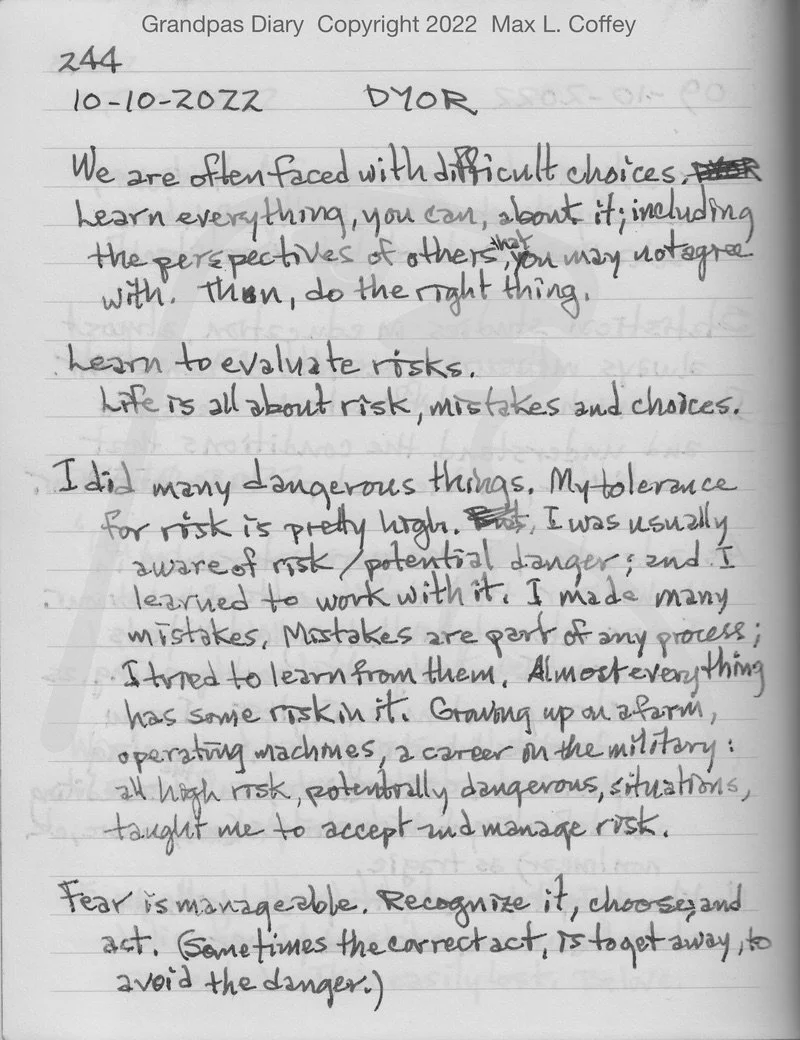 Grandpas Diary Copyright 2022 Max L. Coffey
244
10-10-2022 DYOR
We are often faced with difficult choices.
Learn everything, you can, about it; including
the perspectives of others, that you may not agree
with. Then, do the right thing.
Learn to evaluate risks.
Life is all about risk, mistakes and choices.
I did many dangerous things. My tolerance
for risk is pretty high. I was usually
aware of risk/potential danger; and I
learned to work with it. I made many
mistakes. Mistakes are part of any process;
I tried to learn from them. Almost everything
has some risk in it. Growing up on a farm,
operating machines, a career in the military:
all high risk, potentially dangerous, situations,
taught me to accept and manage risk.
Fear is manageable. Recognize it, choose; and
act. (Sometimes the correct act, is to get away, to
avoid the danger.)